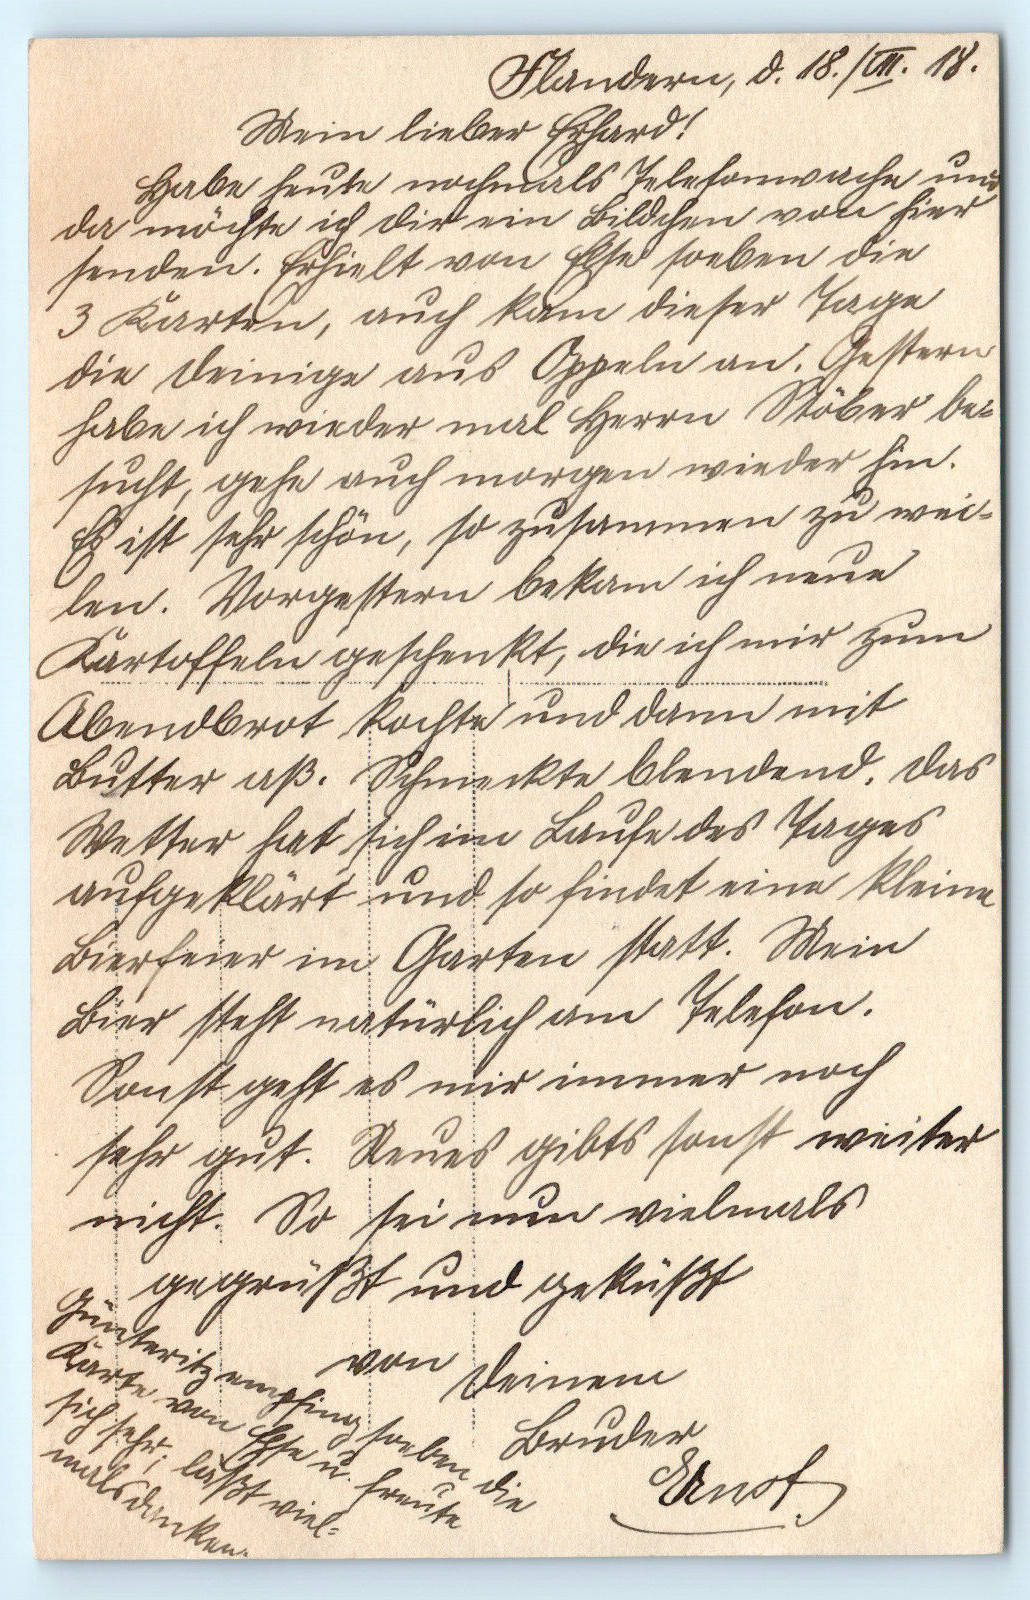 Flandern, d. 18./VII. 18.
Mein lieber Erhard!
Habe heute nochmals Telefonwache und
da möchte ich dir ein Bildchen von hier
senden. Erhielt von Else soeben die
3 Karten, auch kam dieser Tage
die deinige aus Oppeln an. Gestern
habe ich wieder mal Herrn Stöber be-
sucht, gehe auch morgen wieder hin.
Es ist sehr schön, so zusammen zu wei-
len. Vorgestern bekam ich neue
Kartoffeln geschenkt, die ich mir zum
Abendbrot kochte und dann mit
Butter aß. Schmeckte blendend. Das
Wetter hat sich im Laufe des Tages
aufgeklärt und so findet eine kleine
Bierfeier im Garten statt. Mein
Bier steht natürlich am Telefon.
Sonst geht es mir immer noch
sehr gut. Neues gibts sonst weiter
nicht. So sei nun vielmals
gegrüßt und geküßt
von deinem
Bruder
Ernst.
Günteritz empfing soeben die
Karte von Else u. freute
sich sehr; läßt viel-
mals danken.